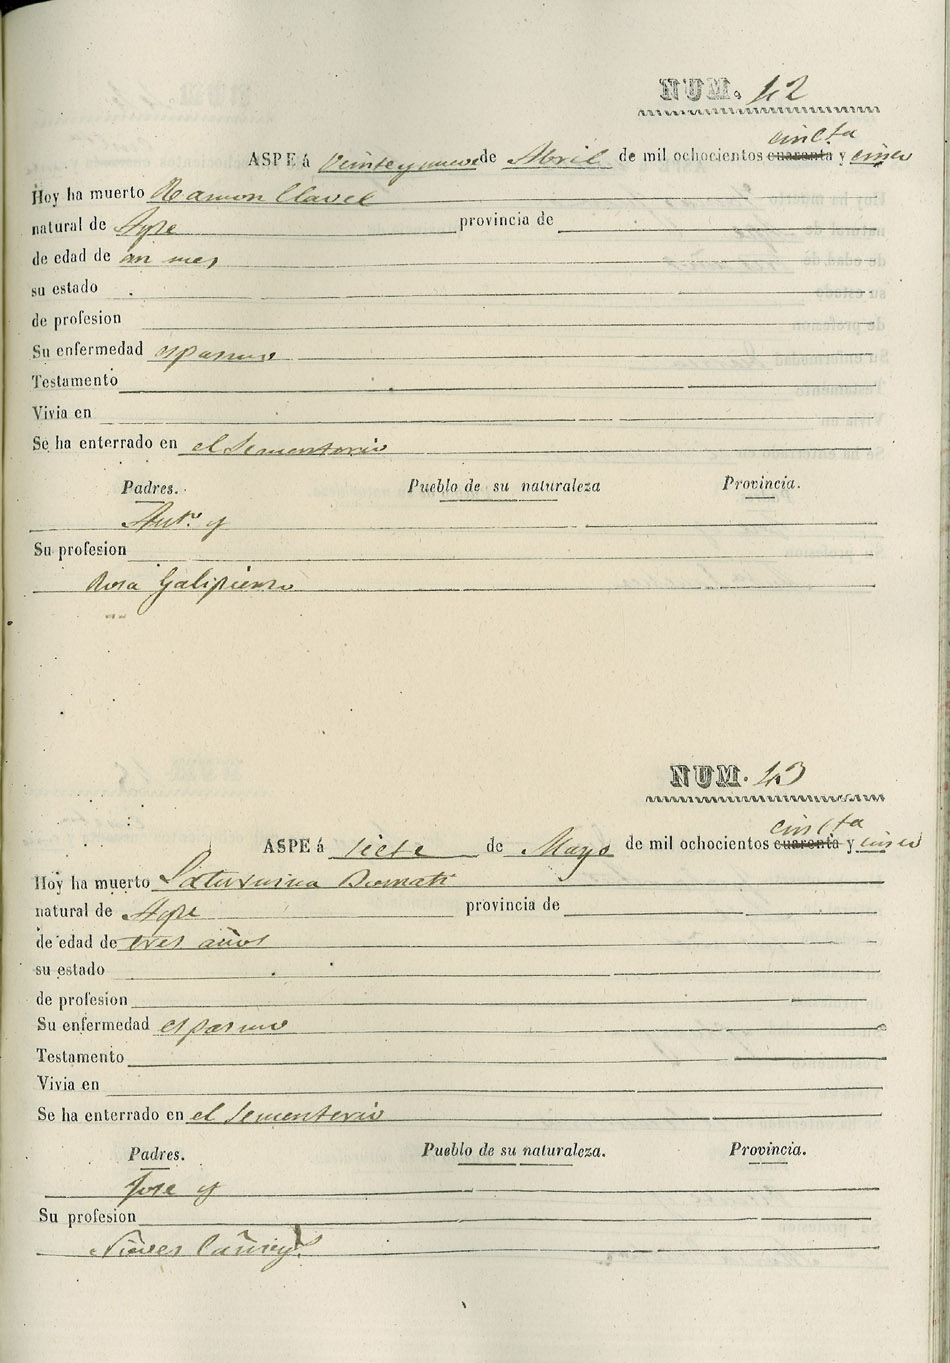 NUM. 42
cincta
ASPE á Veinte y nueve de Abril de mil ochocientos cuarenta y cinco
Hoy ha muerto Ramon Clavel
natural de Aspe provincia de
de edad de un mes
su estado
de profesion
Su enfermedad espasmo
Testamento
Vivia en
Se ha enterrado en el Sementerio
Padres. Pueblo de su naturaleza Provincia.
Anto. y
Su profesion
Rosa Galipienso
NUM. 43
cincta
ASPE á siete de Mayo de mil ochocientos cuarenta y cinco
Hoy ha muerto Saturnina
natural de Aspe provincia de
de edad de tres años
su estado
de profesion
Su enfermedad espasmo
Testamento
Vivia en
Se ha enterrado en el Sementerio
Padres. Pueblo de su naturaleza. Provincia.
Jose y
Su profesion
Nieves